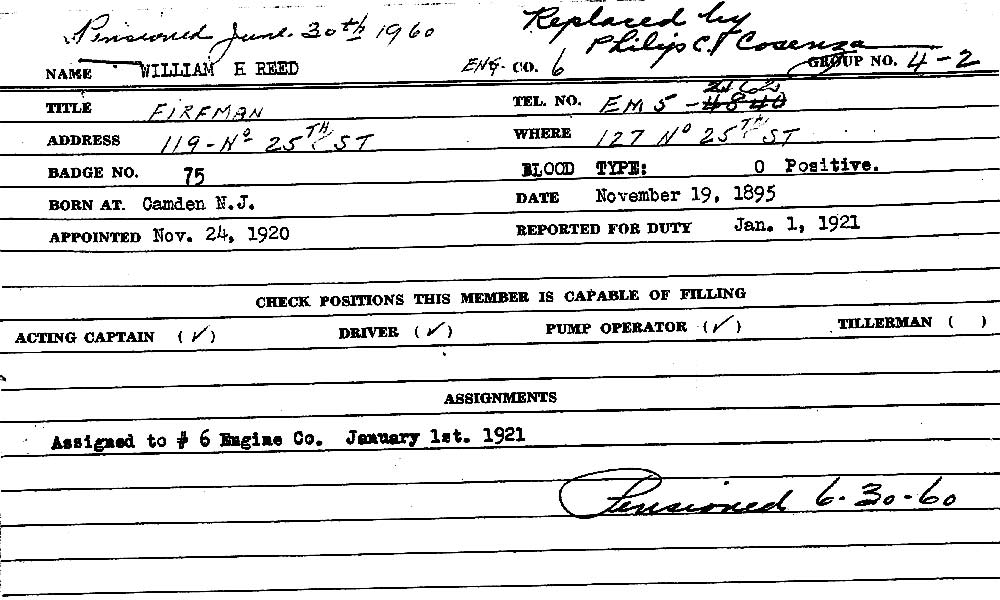 Pensioned June. 30th 1960 Replaced by
Philip C. Cosenza
NAME WILLIAM H REED ENG. CO. 6 GROUP NO. 4-2
TITLE FIREMAN TEL. NO. EM 5 - 4840
ADDRESS 119 - No 25TH ST WHERE 127 No 25TH ST
BADGE NO. 75 BLOOD TYPE: O Positive.
BORN AT. Camden N.J. DATE November 19, 1895
APPOINTED Nov. 24, 1920 REPORTED FOR DUTY Jan. 1, 1921
CHECK POSITIONS THIS MEMBER IS CAPABLE OF FILLING
ACTING CAPTAIN (✓) DRIVER (✓) PUMP OPERATOR (✓) TILLERMAN ( )
ASSIGNMENTS
Assigned to # 6 Engine Co. January 1st. 1921
Pensioned 6-30-60